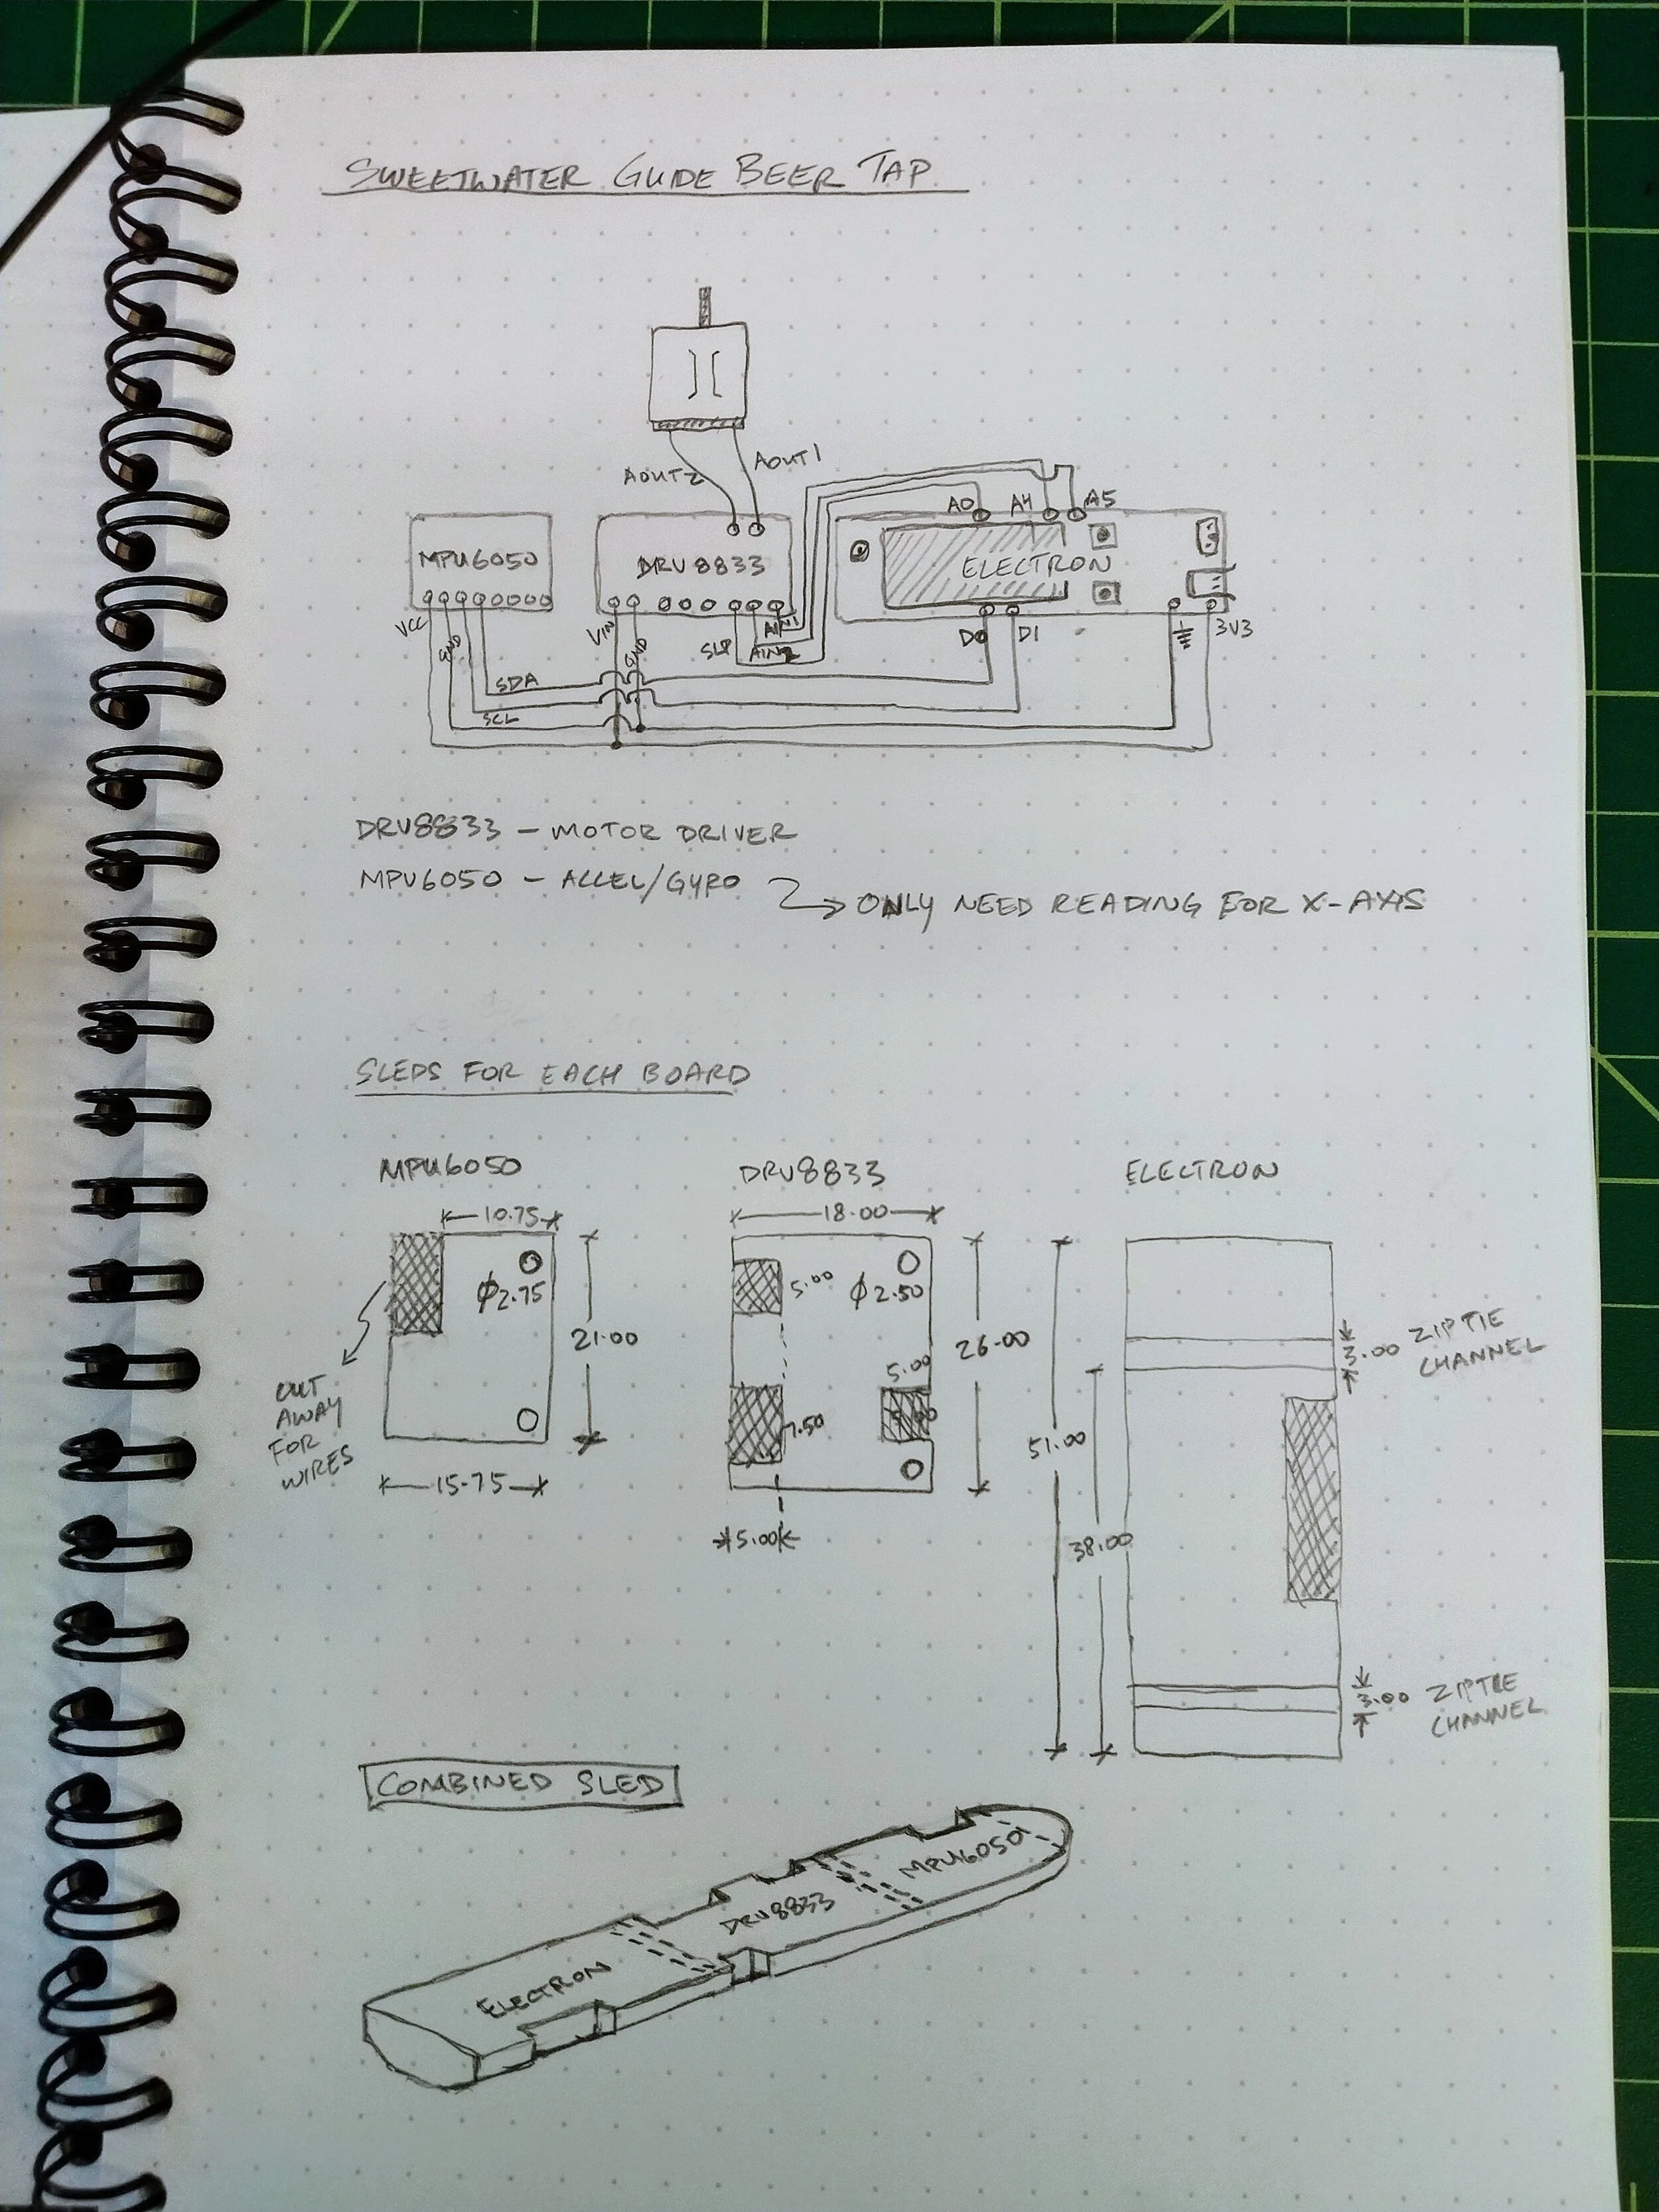 SWEETWATER GUIDE BEER TAP
AOUT2
AOUT1
A0
A4
A5
MPU6050
DRV8833
ELECTRON
VCC
GND
VIN
GND
SLP
AIN2
AIN1
D0
D1
3V3
SDA
SCL
DRV8833 - MOTOR DRIVER
MPU6050 - ACCEL/GYRO
ONLY NEED READING FOR X-AXIS
SLEDS FOR EACH BOARD
MPU6050
DRV8833
ELECTRON
10.75
18.00
Ø2.75
21.00
5.00
Ø2.50
26.00
3.00
ZIPTIE
CHANNEL
5.00
CUT
AWAY
FOR
WIRES
7.50
51.00
15.75
5.00
38.00
3.00
ZIPTIE
CHANNEL
COMBINED SLED
MPU6050
DRV8833
ELECTRON